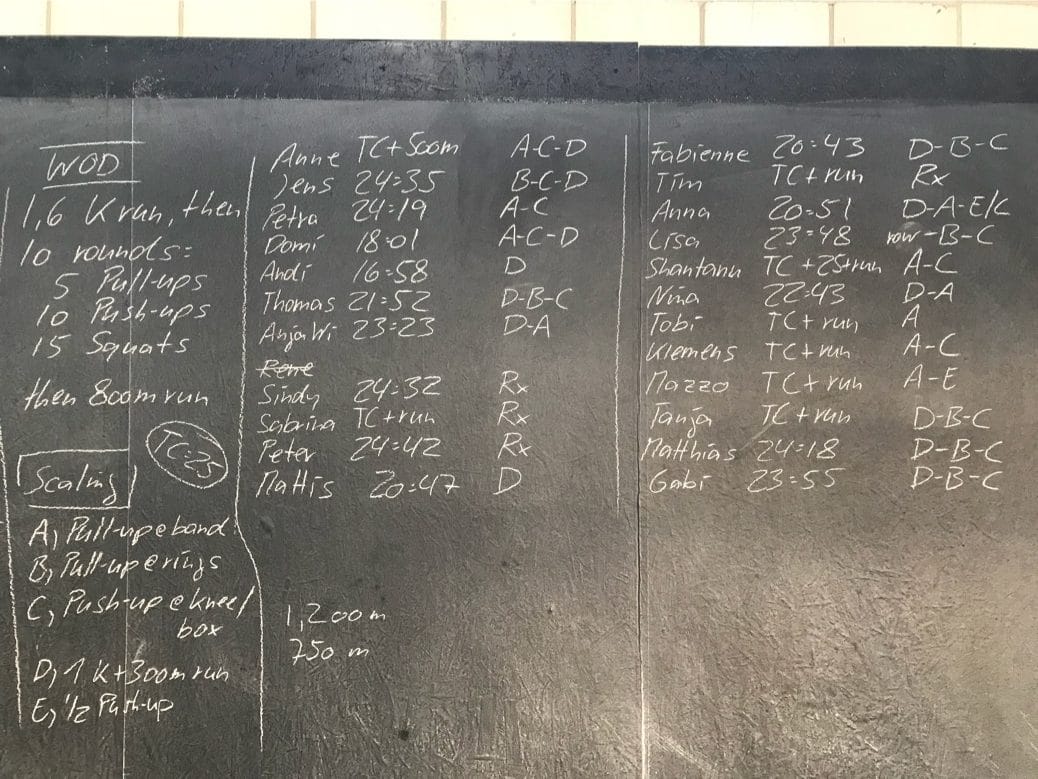 WOD
1,6 K run, then
10 rounds:
5 Pull-ups
10 Push-ups
15 Squats
then 800m run
TC=25
Scaling
A, Pull-up e band
B, Pull-up e rings
C, Push-up @ knee/
box
D, 1 K+300m run
E, 1/2 Push-up
Anne TC+500m A-C-D
Jens 24:35 B-C-D
Petra 24:19 A-C
Domi 18:01 A-C-D
Andi 16:58 D
Thomas 21:52 D-B-C
Anja Wi 23:23 D-A
Rene
Sindy 24:32 Rx
Sabrina TC+run Rx
Peter 24:42 Rx
Mattis 20:47 D
1,200m
750 m
Fabienne 20:43 D-B-C
Tim TC+run Rx
Anna 20:51 D-A-E/C
Lisa 23:48 row-B-C
Shantanu TC+25+run A-C
Nina 22:43 D-A
Tobi TC+run A
Klemens TC+run A-C
Mazzo TC+run A-E
Tanja TC+run D-B-C
Matthias 24:18 D-B-C
Gabi 23:55 D-B-C